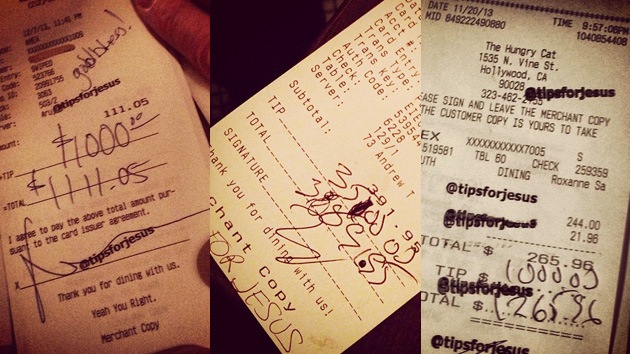 12/7/13, 11:41 PM
AMEX
XXXXXXXXXXX1009
SWIPED
523766
20961755
3063
503/2
god bless!
@tipsforjesus
111.05
TIP $1000.00
=TOTAL $1111.05
I agree to pay the above total amount pur-
suant to the card issuer agreement.
@tipsforjesus
X
Thank you for dining with us.
Yeah You Right.
Merchant Copy
Card
Acct #:
Trans Type:
Trans Key:
Auth Code:
Check:
Table:
Server:
539544
6228
129/1
13 Andrew T
Subtotal:
391.95
TIP
TOTAL
SIGNATURE
Thank you for dining with us!
chant Copy
FOR JESUS
DATE 11/20/13 TIME 9:57:06PM
MID 849222490880 1040854408
The Hungry Cat
1535 N. Vine St.
Hollywood, CA
90028
@tipsforjesus
323-462-2155
EASE SIGN AND LEAVE THE MERCHANT COPY
THE CUSTOMER COPY IS YOURS TO TAKE
EX XXXXXXXXXXX7005 S
519581 TBL 60 CHECK 259359
UTH DINING Roxanne Sa
@tipsforjesus
@tipsforjesus 244.00
21.96
TOTAL $ 265.96
TIP $ 1000.00
@tipsforjesus
OTAL $ 1265.96
@tipsforjesus